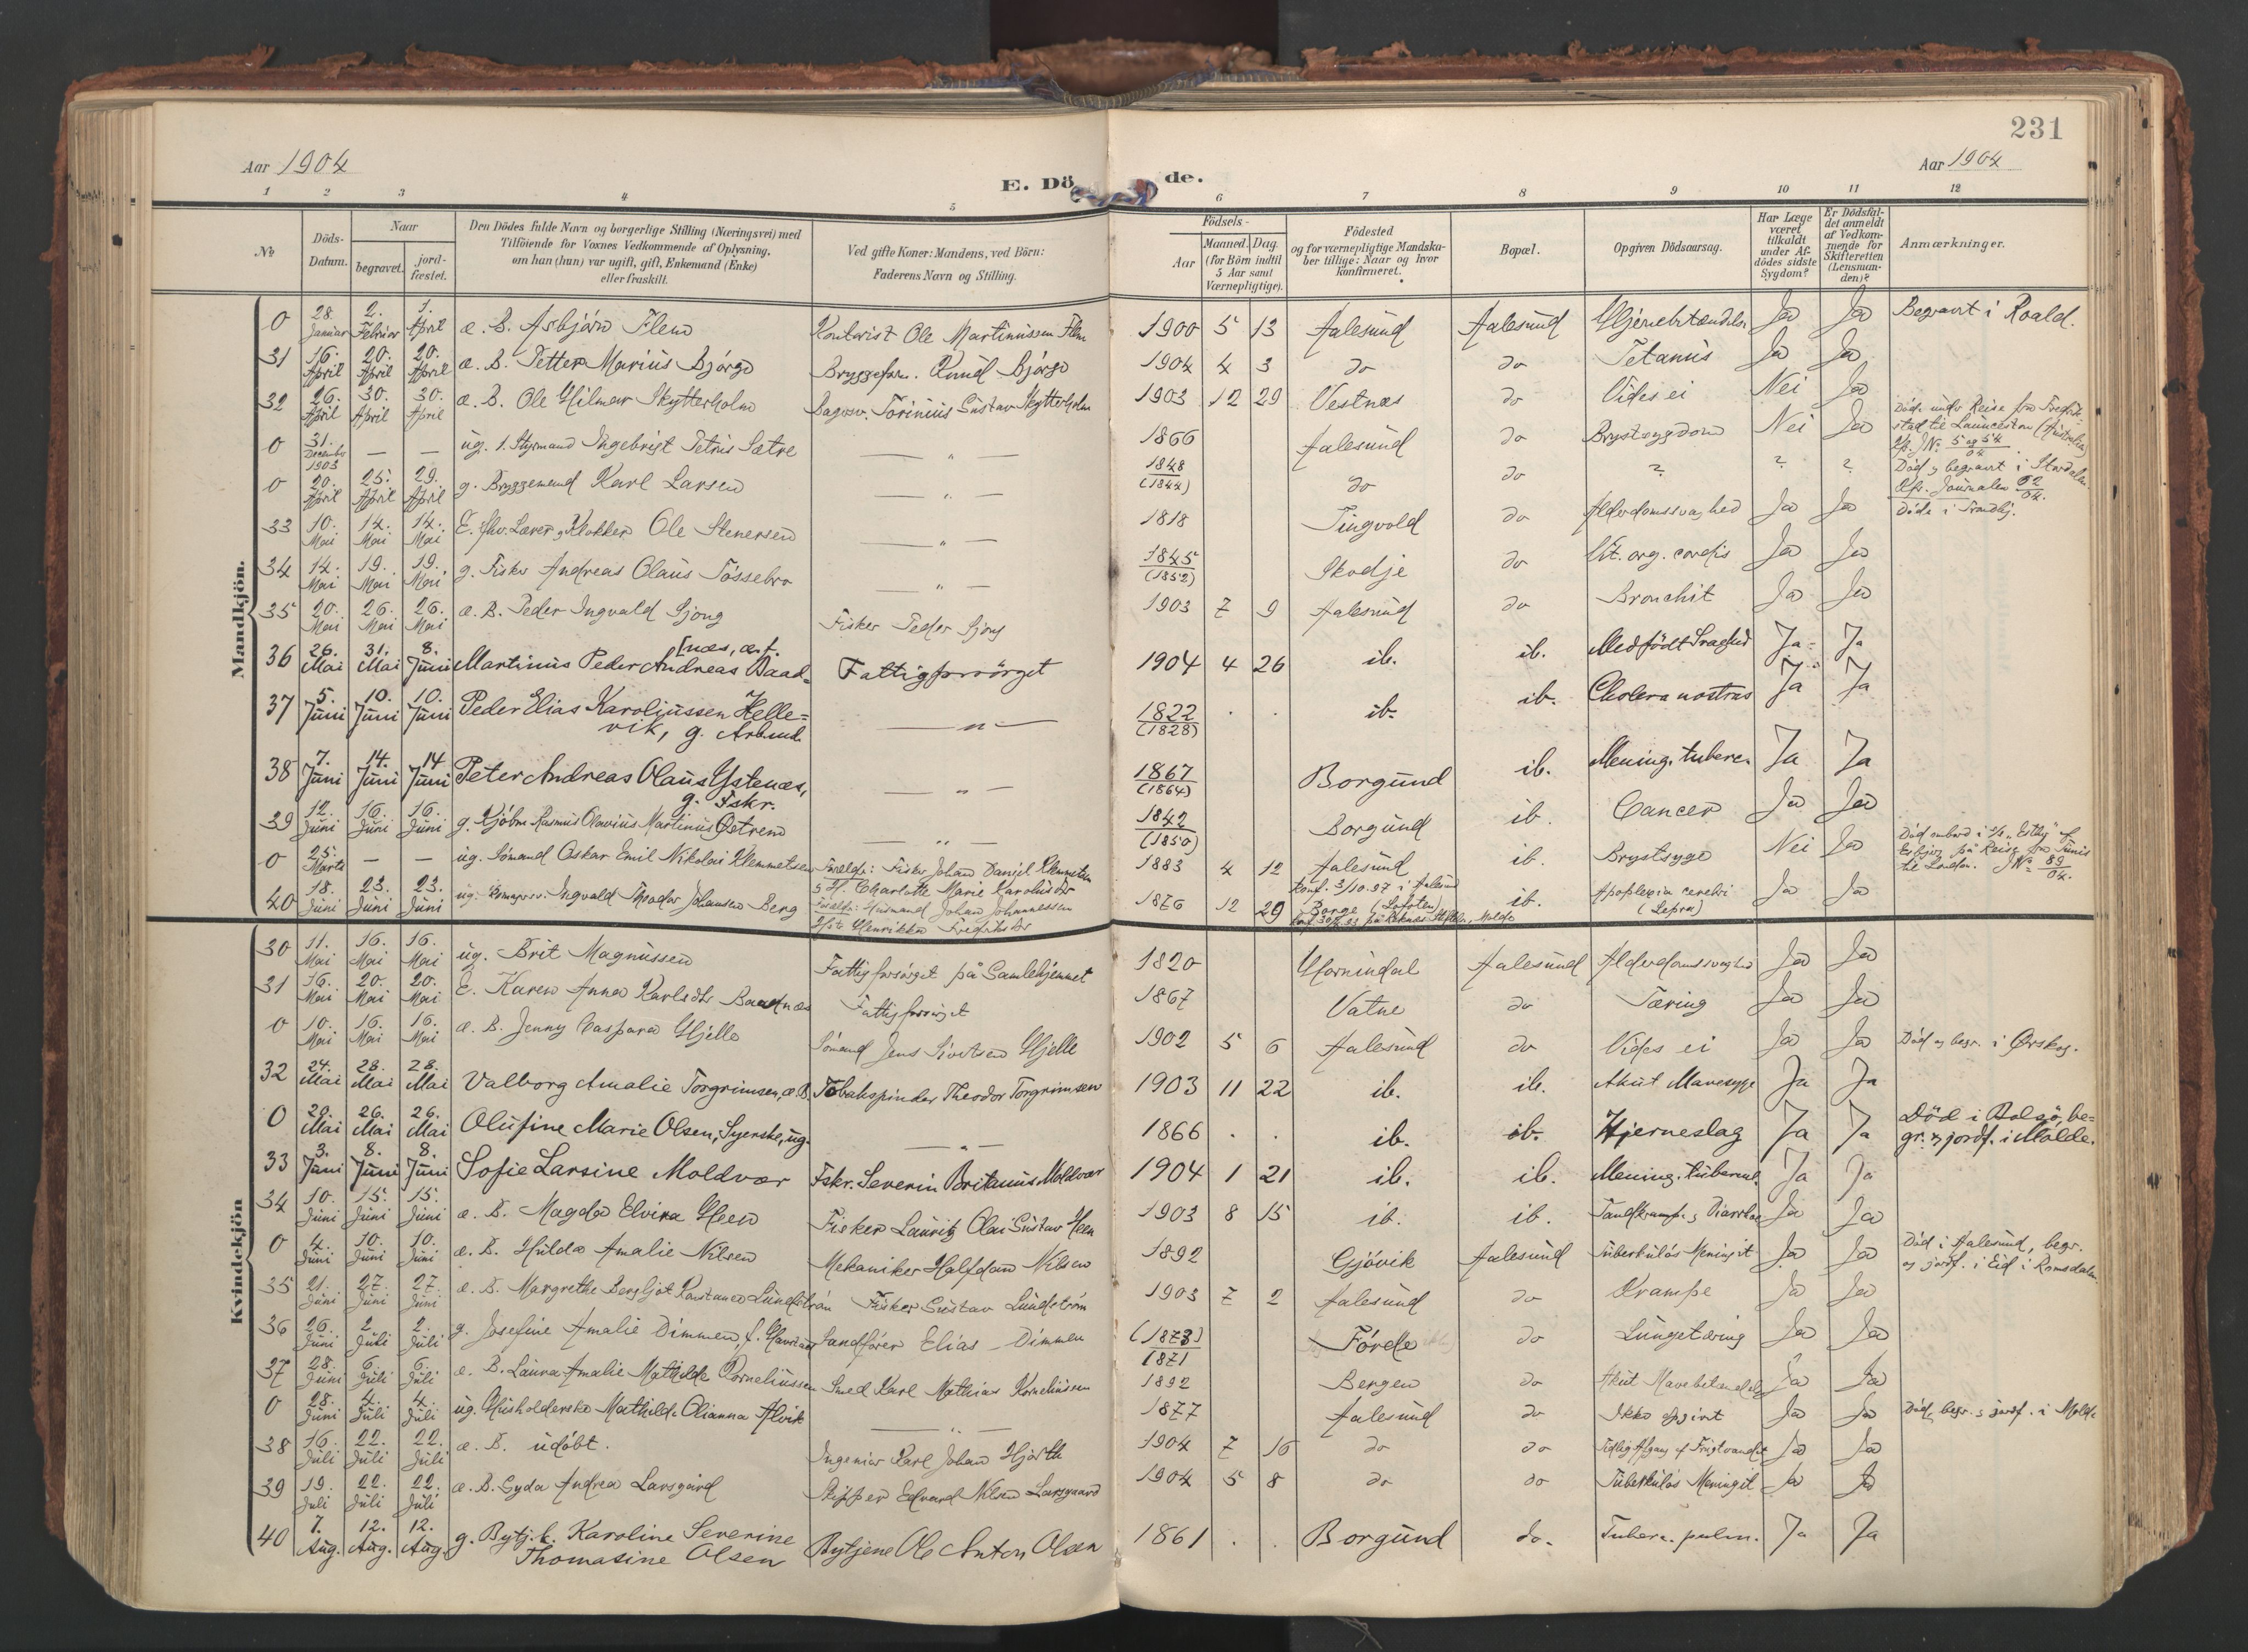 231
Aar 1904
E. Dö de.
Aar 1904
1 2 3 4 5 6 7 8 9 10 11 12
No.
Döds-Datum.
Naar
begravet.
jord-fæstet.
Den Dödes fulde Navn og borgerlige Stilling (Næringsvei) med
Tilföiende for Voxnes Vedkommende af Oplysning,
om han (hun) var ugift, gift, Enkemand (Enke)
eller fraskilt.
Ved gifte Koner: Mandens, ved Börn:
Faderens Navn og Stilling.
Födsels-
Aar
Maaned. Dag.
(for Börn indtil
5 Aar samt
Værnepligtige).
Födested
og for værnepligtige Mandska-
ber tillige: Naar og hvor
konfirmeret.
Bopæl.
Opgiven Dödsaarsag.
Har Læge
været
tilkaldt
under Af-
dödes sidste
Sygdom?
Er Dödsfal-
det anmeldt
af Vedkom-
mende for
Skifteretten
(Lensman-
den)?
Anmærkninger.
Mandkjön.
0 28. Januar 2. Februar 1. April æ. B. Asbjörn Flem Kontorist Ole Martinussen Flem 1900 5 13 Aalesund Aalesund Hjernebetændelse Ja Ja Begravet i Roald.
31 16. April 20. April 20. April æ. B. Petter Marius Bjørge Bryggeform. Knud Bjørge 1904 4 3 do do Tetanus Ja Ja
32 26. April 30. April 30. April æ. B. Ole Hilmar Skytterholm Bagersv. Torinius Gustav Skytterholm 1903 12 29 Vestnæs do Vides ei Nei Ja
0 31. December 1903 — — ug. 1. Styrmand Ingebrigt Petrus Sætre — " — 1866 Aalesund do Brystsygdom Nei Ja Døde under Reise fra Fredrik-
stad til Launceston (Australia)
Jfr. J.No. 5 og 54/04.
0 20. April 25. April 29. April g. Bryggemand Karl Larsen — " — 1848 (1844) do do ? ? ? Død & begravet i Stordalen.
Jfr. Journalen 92/04.
33 10. Mai 14. Mai 14. Mai E. fhv. Lærer & Klokker Ole Stenersen — " — 1818 Tingvold do Alderdomssvaghed Ja Ja Døde i Trondhj.
34 14. Mai 19. Mai 19. Mai g. Fisker Andreas Olaus Fössebro — " — 1845 (1852) Skodje do Vit. org. cordis Ja Ja
35 20. Mai 26. Mai 26. Mai æ. B. Peder Ingvald Sjong Fisker Peder Sjong 1903 7 9 Aalesund do Bronchit Ja Ja
[næs, æ. f.
36 26. Mai 31. Mai 8. Juni Martinus Peder Andreas Baad- Fattigforsörget 1904 4 26 ib. ib. Medfödt Svaghed Ja Ja
37 5. Juni 10. Juni 10. Juni Peder Elias Karoliussen Helle-
vik, g. Arbmd. — " — 1822 (1828) ib. ib. Cholera nostras Ja Ja
38 7. Juni 14. Juni 14 Juni Peter Andreas Olaus Ystenæs,
g. Fskr. — " — 1867 (1864) Borgund ib. Mening. tuberc. Ja Ja
39 12. Juni 16. Juni 16. Juni g. Kjöbm. Rasmus Olavius Martinus Østrem — " — 1842 (1850) Borgund ib. Cancer Ja Ja
0 25. Marts — — ug. Sömand Oskar Emil Nikolai Klemmetsen Forældr: Fisker Johan Daniel Klemmetsen
& H. Charlotte Marie Karolusdtr 1883 4 12 Aalesund
Konf. 3/10.97 i Aalesund ib. Brystsyge Nei Ja Død ombord i S/S "Esthy" af
Esbjerg på Reise fra Tunis
til London. J.No. 89/04.
40 18. Juni 23. Juni 23. Juni ug. Ingvald Theodor Johansen Berg Forældr: Husmand Johan Johannessen
Hstr. Henrikka Fredriksdtr 1876 12 29 Borge (Lofoten) ib. Apoplexia cerebri
(Lepra) Ja Ja
Kvindekjön
30 11. Mai 16. Mai 16. Mai ug. Brit Magnussen Fattigforsörget på Samlehjemmet 1820 Hornindal Aalesund Alderdomssvaghed Ja Ja
31 16. Mai 20. Mai 20. Mai E. Karen Anna Karlsdtr Baadnæs Fattigforsörget 1867 Vatne do Tæring Ja Ja
0 10. Mai 16. Mai 16. Mai æ. B. Jenny Caspara Hjelle Sömand Jens Sivertsen Hjelle 1902 5 6 Aalesund do Vides ei Ja Ja Død og begr. i Ørskog.
32 24. Mai 28. Mai 28. Mai Valborg Amalie Torgrimsen, æ. B. Tobakspinder Theodor Torgrimsen 1903 11 22 ib. ib. Akut Mavesyge Ja Ja
0 20. Mai 26. Mai 26. Mai Olufine Marie Olsen, Syerske, ug. — " — 1866 . . ib. ib. Hjerneslag Ja Ja Död i Bolsö, be-
gr. & jordf. i Molde.
33 3. Juni 8. Juni 8. Juni Sofie Larsine Moldvær Fskr. Severin Beritanus Moldvær 1904 1 21 ib. ib. Mening. tubercul. Ja Ja
34 10. Juni 15. Juni 15. Juni æ. B. Magda Elvira Heen Fisker Lauritz Olai Gustav Heen 1903 8 15 ib. ib. Tandkrampe & Diarrhoe Ja Ja
0 4. Juni 10. Juni 10. Juni æ. B. Hulda Amalie Nilsen Mekaniker Halfdan Nilsen 1892 Gjövik Aalesund Tuberkuløs Meningit Ja Ja Død i Aalesund, begr.
og jordf. i Eid i Romsdalen
35 21. Juni 27. Juni 27. Juni æ. B. Margrethe Bergljot Konstance Lundström Fisker Gustav Lundström 1903 7 2 Aalesund do Krampe Ja Ja
36 26. Juni 2. Juli 2. Juli g. Josefine Amalie Dimmen, f. Sandfører Elias Dimmen (1873) 1871 Förde do Lungetæring Ja Ja
37 28. Juni 6. Juli 6. Juli æ. B. Laura Amalie Mathilde Korneliussen Smed Karl Mathias Korneliussen 1892 Bergen do Akut Mavebetændelse Ja Ja
0 28. Juni 4. Juli 4. Juli ug. Husholderske Mathilde Olianna Alvik — " — 1877 Aalesund do Ikke opgivet Ja Ja Död, begr. & jordf. i Molde
38 16. Juli 22. Juli 22. Juli æ. B. udöbt. Ingeniør Karl Johan Hjorth 1904 7 16 do do Tidlig Afgang af Frugtvandet Ja Ja
39 19. Juli 22. Juli 22. Juli æ. B. Gyda Andrea Larsgård Skipper Edvard Nilsen Larsgaard 1904 5 8 do do Tuberkuløs Meningit Ja Ja
40 7. Aug. 12. Aug. 12. Aug. g. Bytj. k. Karoline Severine
Thomasine Olsen Bytjener Ole Anton Olsen 1861 . . Borgund do. Tuberc. pulm. Ja Ja